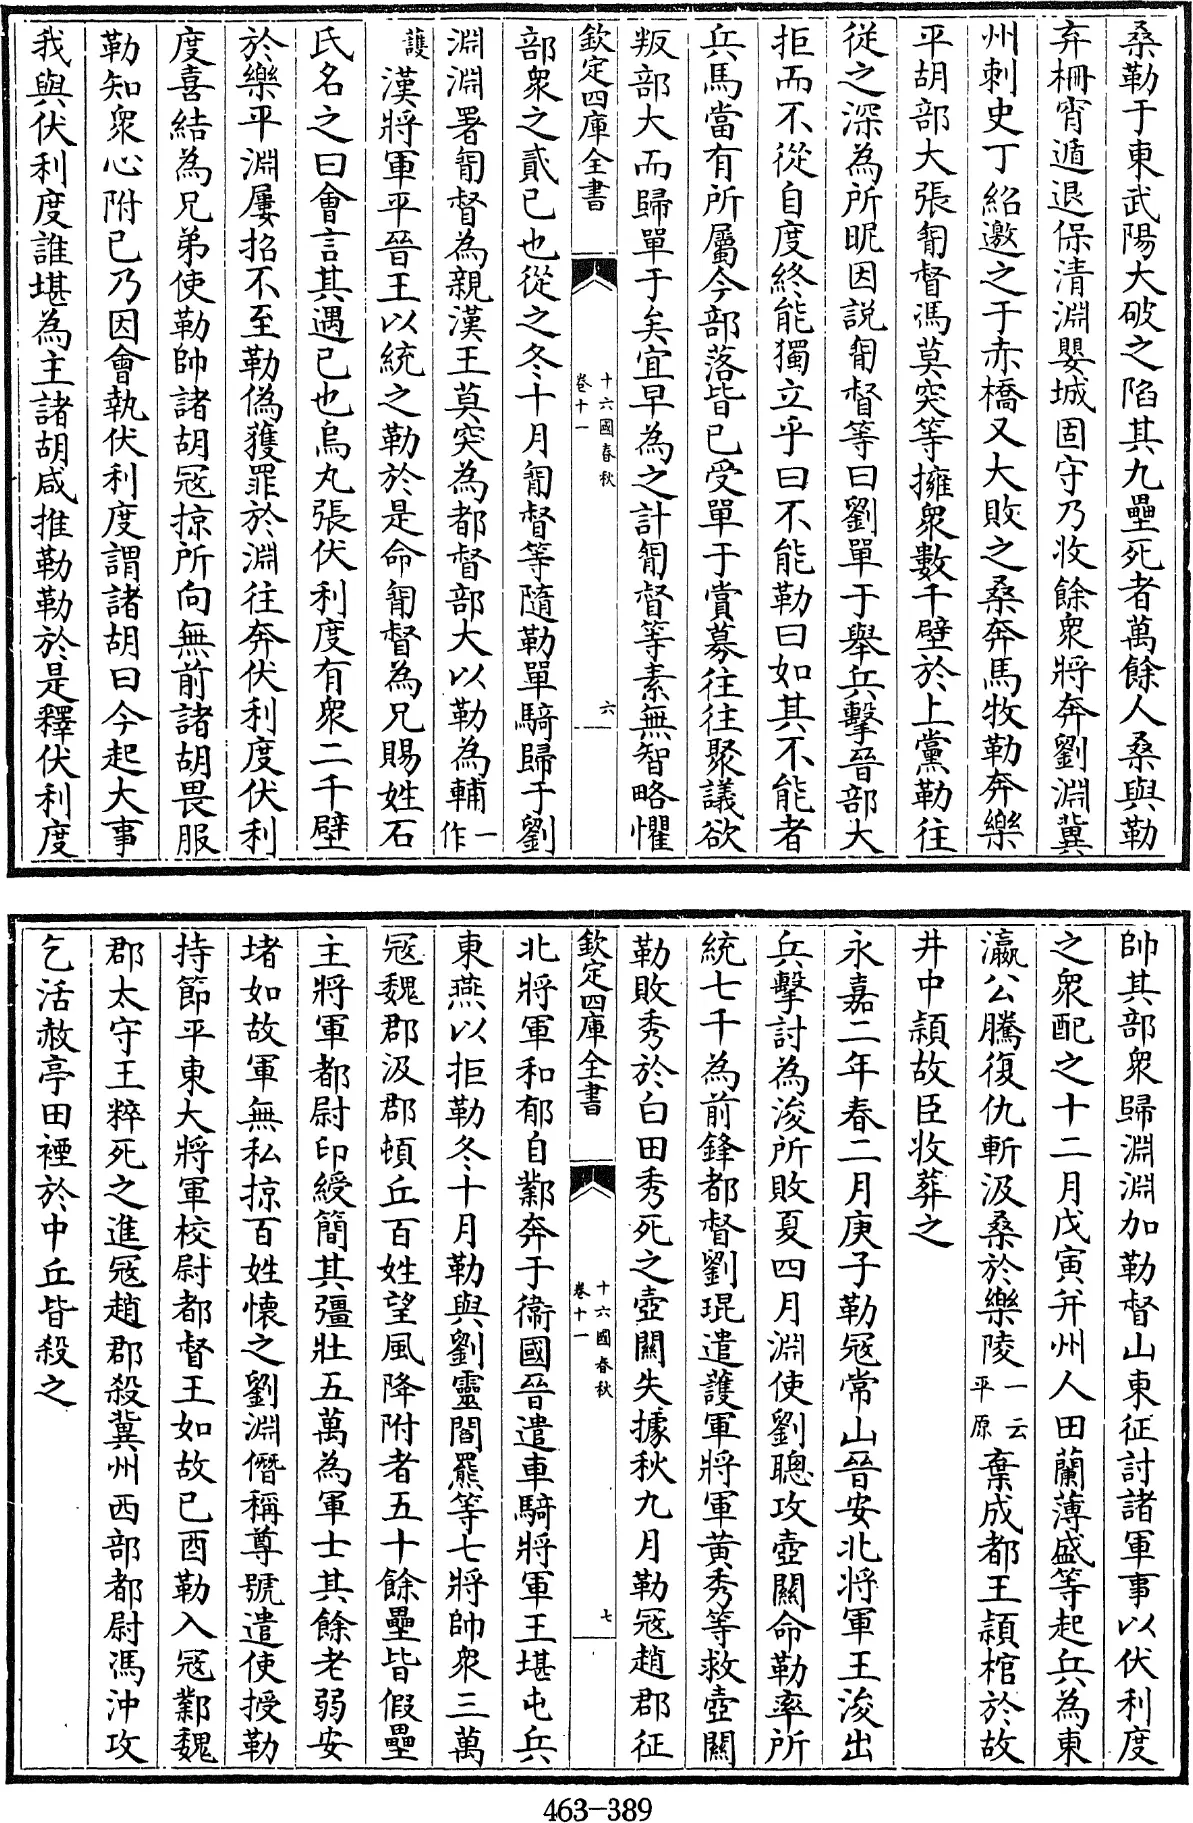 桑勒于東武陽大破之陷其九壘死者萬餘人桑與勒
弃柵宵遁退保清淵嬰城固守乃收餘衆將奔劉淵冀
州刺史丁紹邀之于赤橋又大敗之桑奔馬牧勒奔樂
平胡部大張㔨督馮莫突等擁衆數千壁於上黨勒往
從之深為所昵因説㔨督等曰劉單于舉兵擊晉部大
拒而不從自度終能獨立乎曰不能勒曰如其不能者
兵馬當有所屬今部落皆已受單于賞募往往聚議欲
叛部大而歸單于矣宜早為之計㔨督等素無智略懼
欽定四庫全書
十六國春秋
卷十一
六
部衆之貳已也從之冬十月㔨督等隨勒單騎歸于劉
淵淵署㔨督為親漢王莫突為都督部大以勒為輔一作
護漢將軍平晉王以統之勒於是命㔨督為兄賜姓石
氏名之曰會言其遇已也烏丸張伏利度有衆二千壁
於樂平淵屢招不至勒偽獲罪於淵往奔伏利度伏利
度喜結為兄弟使勒帥諸胡寇掠所向無前諸胡畏服
勒知衆心附已乃因會執伏利度謂諸胡曰今起大事
我與伏利度誰堪為主諸胡咸推勒勒於是釋伏利度
帥其部衆歸淵淵加勒督山東征討諸軍事以伏利度
之衆配之十二月戊寅并州人田蘭薄盛等起兵為東
瀛公騰復仇斬汲桑於樂陵一云平原棄成都王頴棺於故
井中頴故臣收葬之
永嘉二年春二月庚子勒寇常山晉安北將軍王浚出
兵擊討為浚所敗夏四月淵使劉聰攻壺關命勒率所
統七千為前鋒都督劉琨遣護軍將軍黄秀等救壺關
勒敗秀於白田秀死之壺關失據秋九月勒寇趙郡征
欽定四庫全書
十六國春秋
卷十一
七
北將軍和郁自鄴奔于衞國晉遣車騎將軍王堪屯兵
東燕以拒勒冬十月勒與劉靈閻羆等七將帥衆三萬
寇魏郡汲郡頓丘百姓望風降附者五十餘壘皆假壘
主將軍都尉印綬簡其彊壯五萬為軍士其餘老弱安
堵如故軍無私掠百姓懷之劉淵僭稱尊號遣使授勒
持節平東大將軍校尉都督王如故己酉勒入寇鄴魏
郡太守王粹死之進寇趙郡殺冀州西部都尉馮沖攻
乞活赦亭田禋於中丘皆殺之
463-389